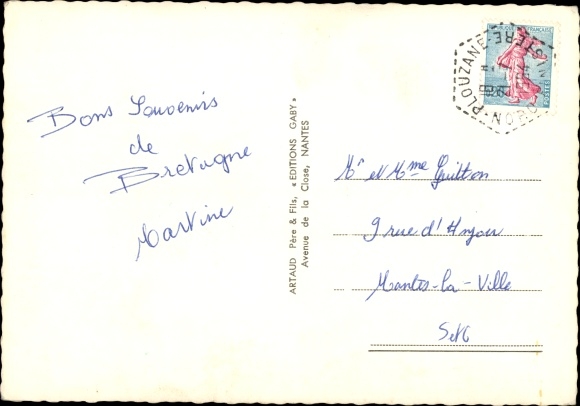 Bons Souvenirs
de
Bretagne
Martine
ARTAUD Père & Fils, « EDITIONS GABY »
Avenue de la Close, NANTES
Mr et Mme Guitton
9 rue d'Anjou
Mantes-la-Ville
S et O
REPUBLIQUE FRANÇAISE
POSTES
PLOUZANE